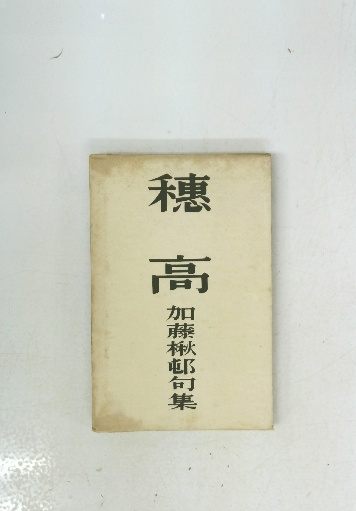 穗高
加藤楸邨句集